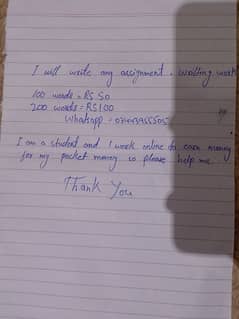 I will write any assignment . writing work
100 words = RS 50
200 words = RS 100
Whatsapp =
I am a student and I work online to earn money
for my pocket money so please help me
Thank You